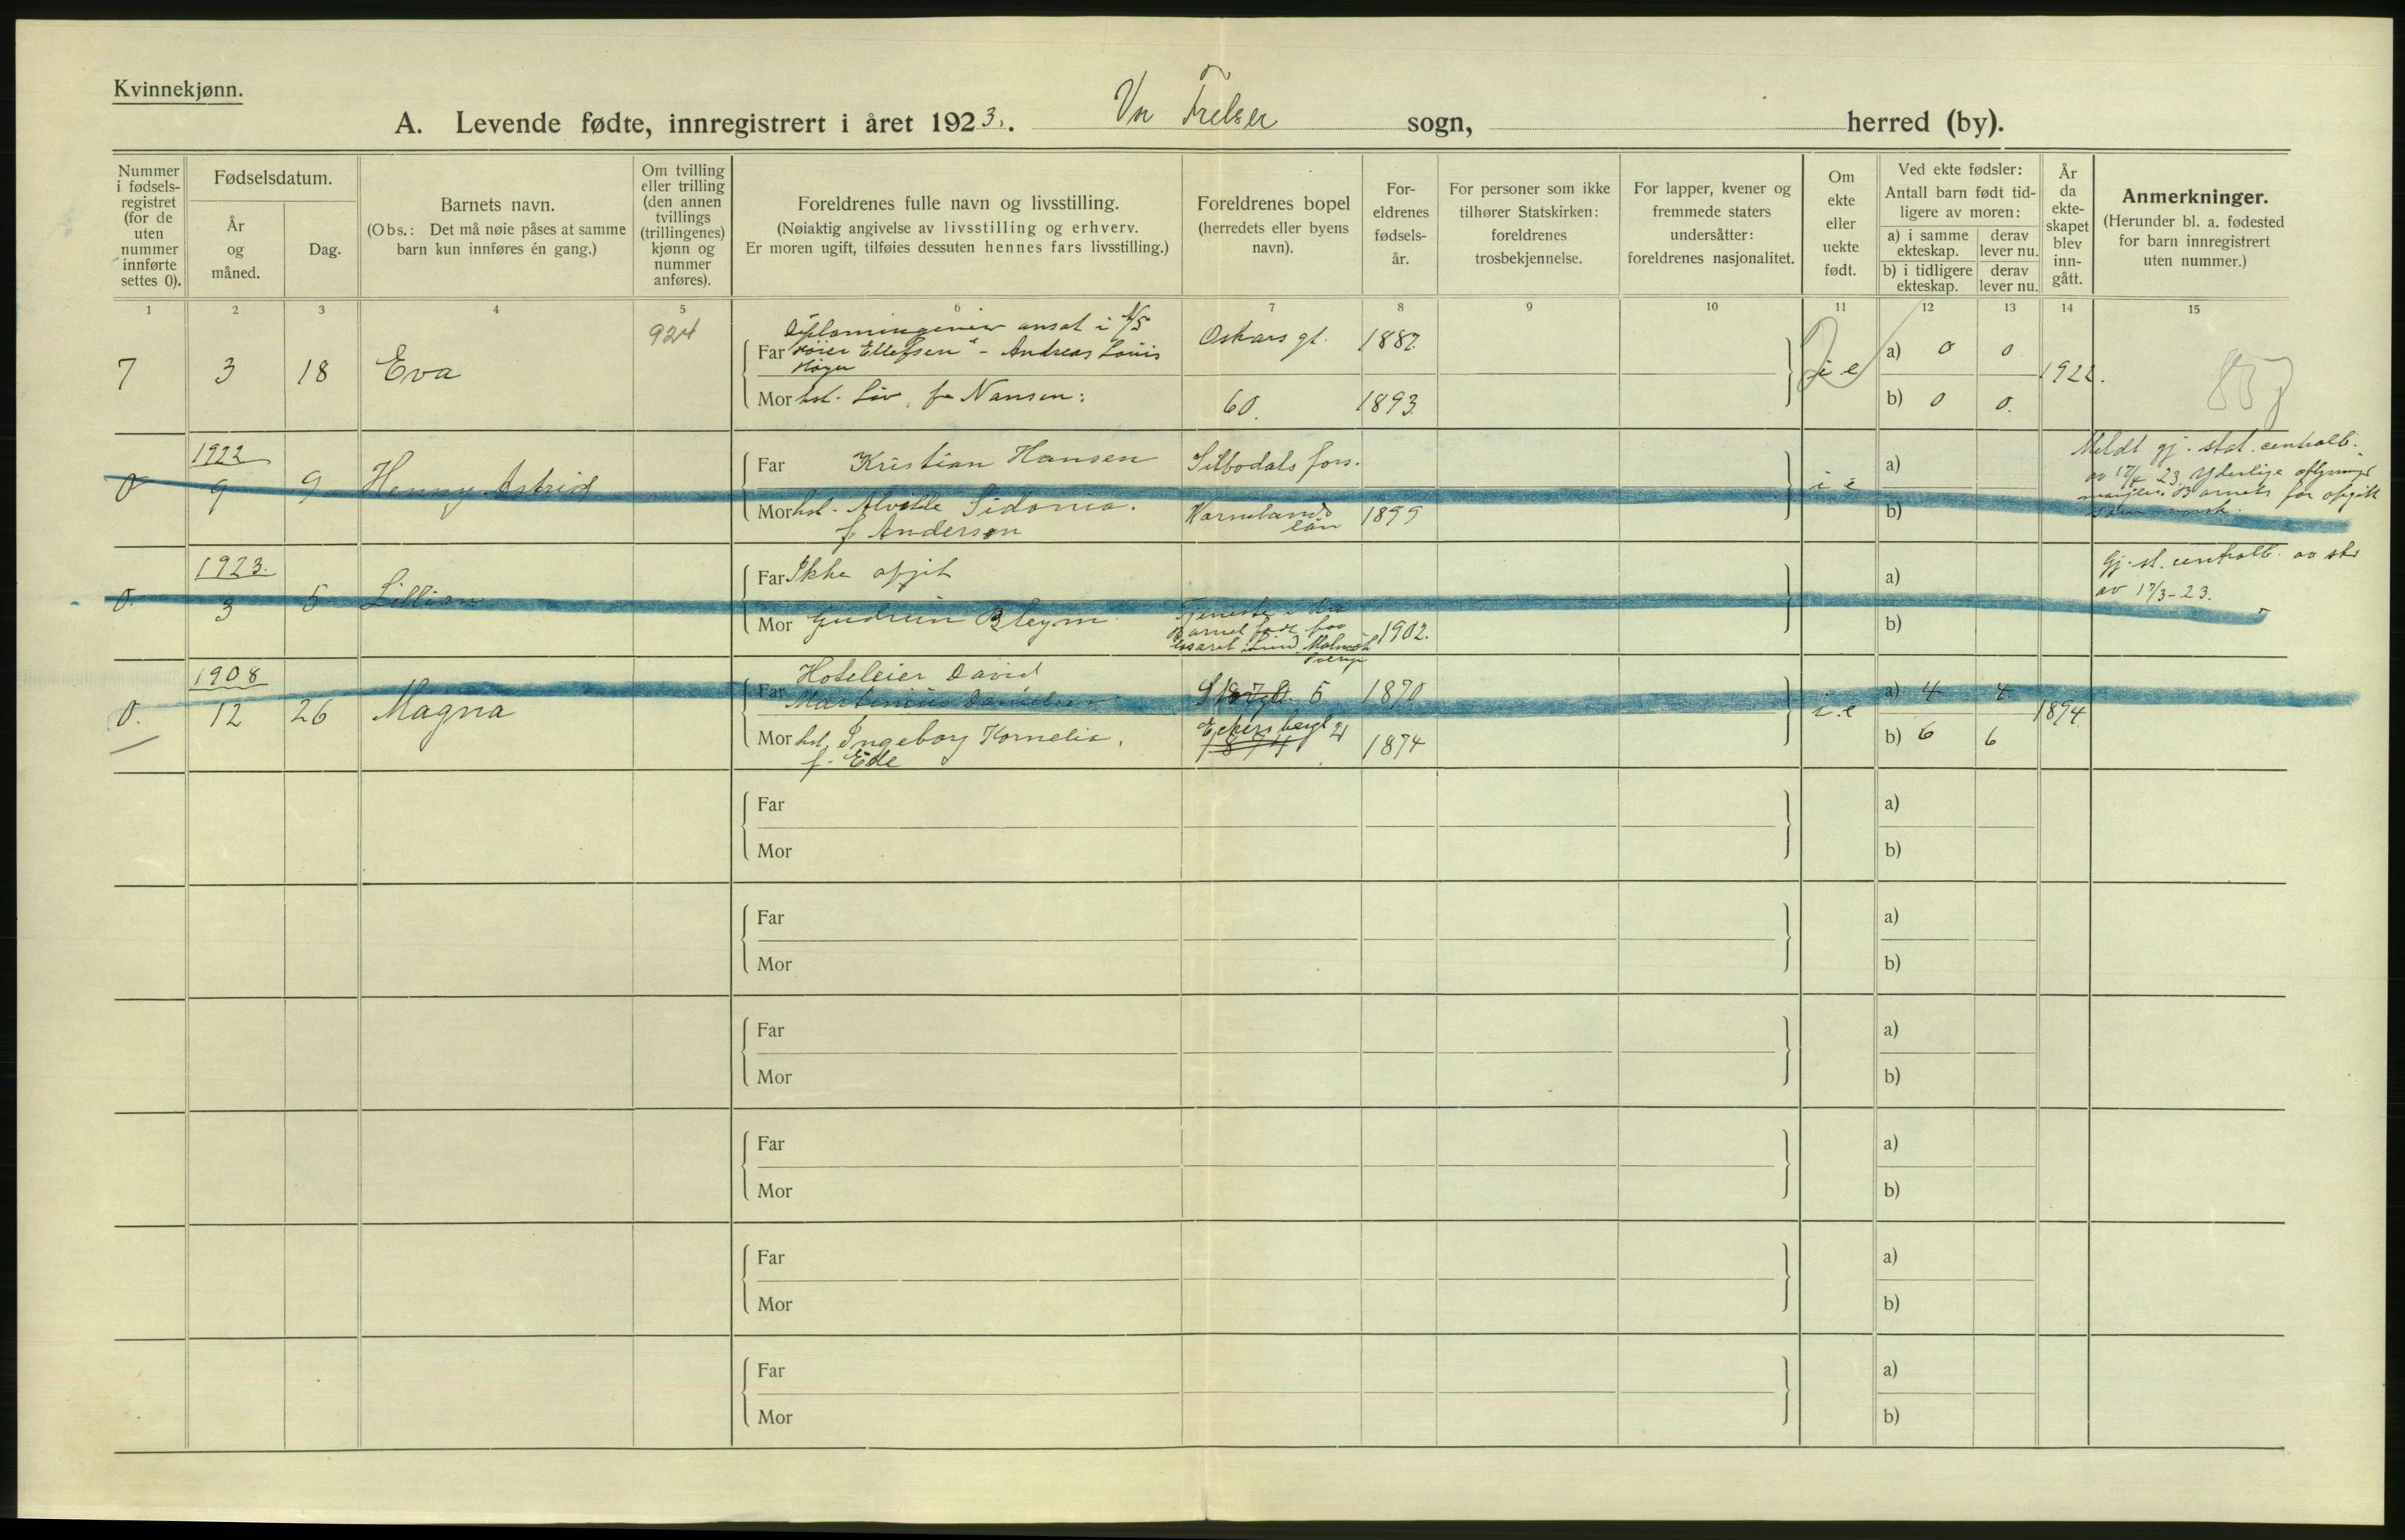 Kvinnekjønn.
A. Levende fødte, innregistrert i året 1923. Vor Frelser sogn, herred (by).
Nummer
i fødsels-
registret
(for de
uten
nummer
innførte
settes 0).
Fødselsdatum.
År
og
måned.
Dag.
Barnets navn.
(Obs.: Det må nøie påses at samme
barn kun innføres én gang.)
Om tvilling
eller trilling
(den annen
tvillings
(trillingenes)
kjønn og
nummer
anføres).
Foreldrenes fulle navn og livsstilling.
(Nøiaktig angivelse av livsstilling og erhverv.
Er moren ugift, tilføies dessuten hennes fars livsstilling.)
Foreldrenes bopel
(herredets eller byens
navn).
For-
eldrenes
fødsels-
år.
For personer som ikke
tilhører Statskirken:
foreldrenes
trosbekjennelse.
For lapper, kvener og
fremmede staters
undersåtter:
foreldrenes nasjonalitet.
Om
ekte
eller
uekte
født.
Ved ekte fødsler:
Antall barn født tid-
ligere av moren:
a) i samme
ekteskap.
derav
lever nu.
b) i tidligere
ekteskap.
derav
lever nu.
År
da
ekte-
skapet
blev
inn-
gått.
Anmerkninger.
(Herunder bl. a. fødested
for barn innregistrert
uten nummer.)
1 2 3 4 5 6 7 8 9 10 11 12 13 14 15
7 3 18 Eva 924
Diplomingeniør ansat i A/S
Far Høier Ellefsen" - Andreas Louis
Høyer
Oskars gt. 1887
Mor hst. Liv, f. Nansen:
60. 1893.
i e
a) 0 0
b) 0 0.
1922.
857
1922
0 9 9 Henny Astrid
Far Kristian Hansen
Silbodals fors.
Mor hst. Alvilde Sidonia.
f Anderson
Varmlands
län 1899
i e
a)
b)
Meldt gj. stat. centralb.
av 17/4 23 Yderlige oplysninger
mangler. Barnets far opgitt
norsk.
1923.
0. 3 5 Lillian
Far Ikke opgit
Mor Gudrun Bleym
Tjeneste i Kra
Barnet født paa
Lund Malmöh
Sverige
1902.
a)
b)
Gj. st. centralb. av
av 17/3-23.
1908
0. 12 26 Magna
Hoteleier David
Far Martinius Danielsen
5 1870
Mor hst Ingeborg Kornelia,
f. Ede
Eckersbergt 21
1874
1874
i. e
a) 4 4
b) 6 6
1894
Far
Mor
a)
b)
Far
Mor
a)
b)
Far
Mor
a)
b)
Far
Mor
a)
b)
Far
Mor
a)
b)
Far
Mor
a)
b)